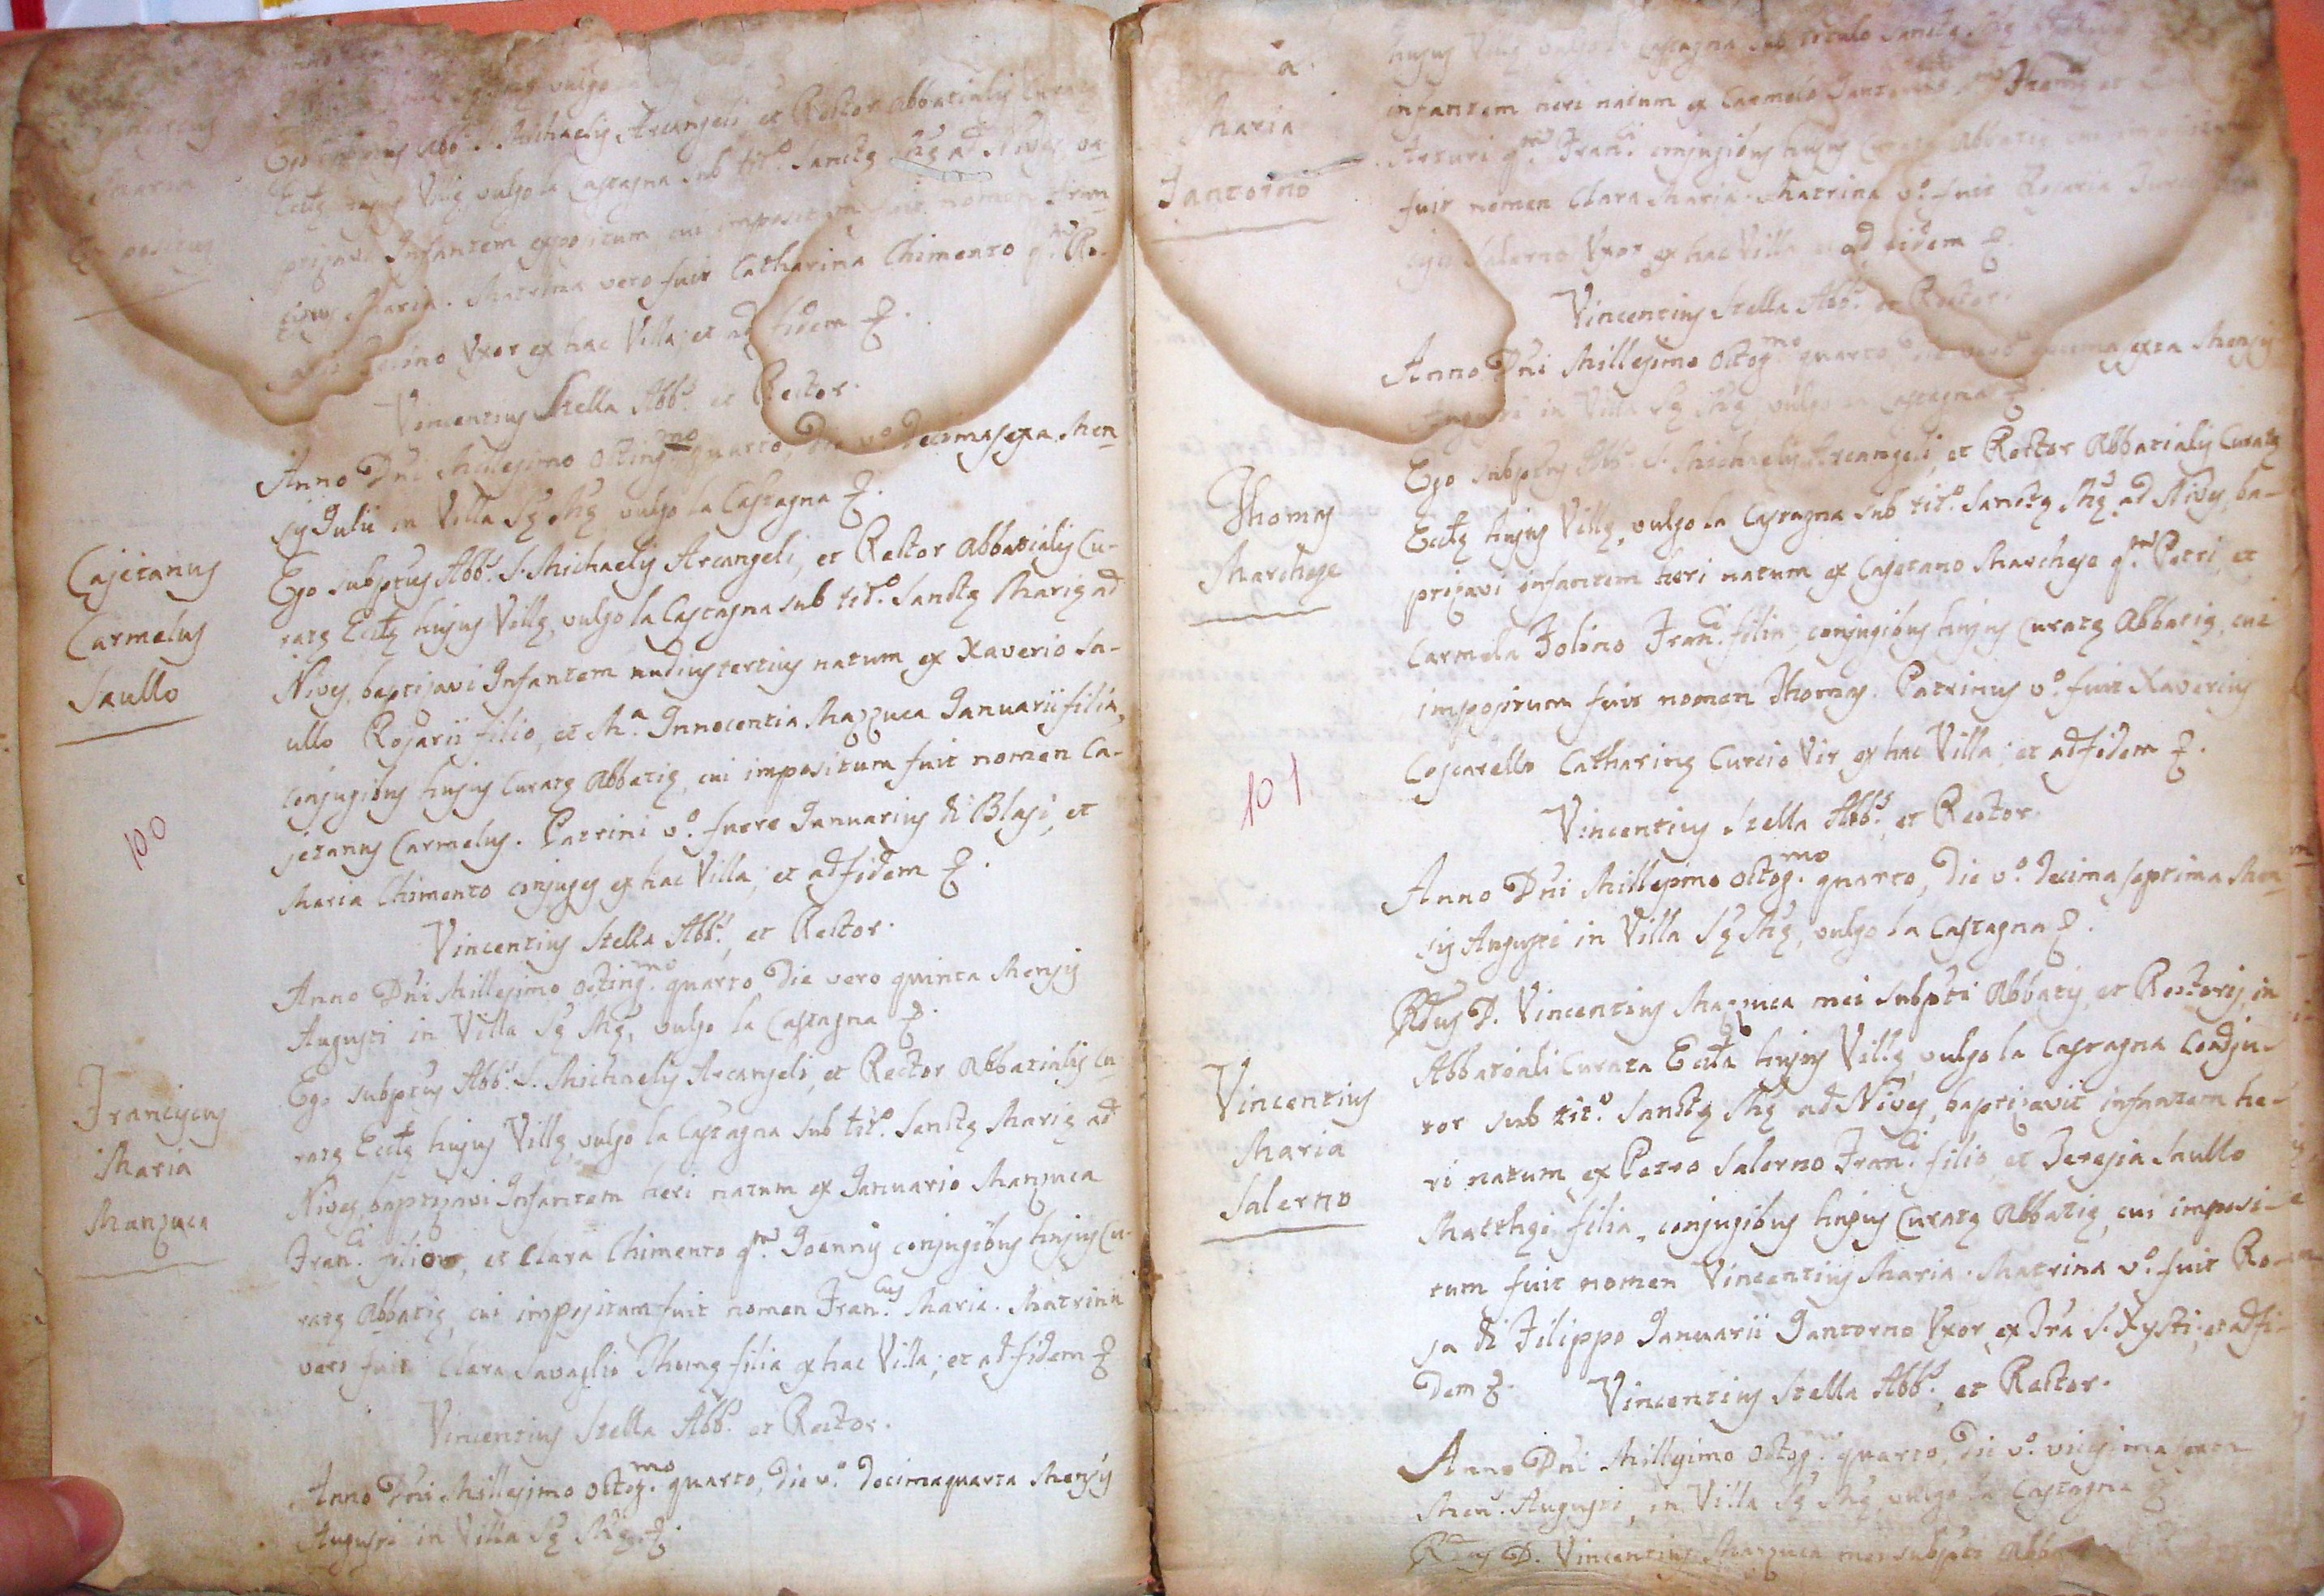 vulgo
Maria
Ego Abb.s S. Michaelis Arcangeli et Rector Abbatialis Curatę
Ecclę hujus Villę vulgo la Castagna sub tit.o Sanctę Mę ad Nives, ba-
ptizavi Infantem expositum cui impositum fuit nomen Fran
ciscus Maria. Matrina vero fuit Catharina Chimento q.m Ro-
Uxor ex hac Villa, et ad fidem
Vincentius Stella Abb.s et Rector.
Anno Dni Millesimo Octing.mo quarto, Die v.o Decimasexta Men
sis Julii in Villa Sę Mę vulgo la Castagna
Cajetanus
Carmelus
Saullo
Ego subptus Abb.s S. Michaelis Arcangeli, et Rector Abbatialis Cu-
ratę Ecclę hujus Villę, vulgo la Castagna sub tit.o Sanctę Marię ad
Nives, baptizavi Infantem nudiustertius natum ex Xaverio Sa-
ullo Rosarii filio, et M.a Innocentia Mazzuca Januarii filia,
conjugibus hujus Curatę Abbatię, cui impositum fuit nomen Ca-
jetanus Carmelus. Patrini v.o fuere Januarius di Blasi, et
Maria Chimento conjuges ex hac Villa; et ad fidem
100
Vincentius Stella Abb.s, et Rector.
Anno Dni Millesimo Octing.mo quarto Die vero quinta Mensis
Augusti in Villa Sę Mę, vulgo la Castagna
Franciscus
Maria
Manzuca
Ego subptus Abb.s S. Michaelis Arcangeli, et Rector Abbatialis Cu-
ratę Ecclę hujus Villę, vulgo la Castagna sub tit.o Sanctę Marię ad
Nives, baptizavi Infantem heri natum ex Januario Manzuca
Fran.ci filio, et Clara Chimento q.m Joannis conjugibus hujus Cu-
ratę Abbatię, cui impositum fuit nomen Fran.cus Maria. Matrina
vero fuit Clara Savaglio Thomę filia ex hac Villa; et ad fidem
Vincentius Stella Abb.s et Rector.
Anno Dni Millesimo Octog.mo quarto, Die v.o Decimaquarta Mensis
Augusti in Villa Sę Mę
a
Maria
Jantorno
hujus Villę vulgo la Castagna sub titulo Sanctę Mę
infantem heri natum ex Carmelo
Arturi q.m Fran.ci conjugibus hujus Curatę Abbatię cui
fuit nomen Clara Maria. Matrina v.o fuit Rosaria
Salerno Uxor ex hac Villa et ad fidem
Vincentius Stella Abb.s et Rector.
Anno Dni Millesimo Octog.mo quarto Die vero decimasexta Mensis
Augusti in Villa Sę Mę vulgo la Castagna
Thomas
Marchese
Ego subptus Abb.s S. Michaelis Arcangeli, et Rector Abbatialis Curatę
Ecclę hujus Villę, vulgo la Castagna sub tit.o Sanctę Mę ad Nives, ba-
ptizavi infantem heri natum ex Cajetano Marchese q.m Petri, et
Carmela Folino Fran.ci filia, conjugibus hujus Curatę Abbatię, cui
impositum fuit nomen Thomas. Patrinus v.o fuit Xaverius
Coscarello Catharinę Curcio Vir ex hac Villa; et ad fidem
101
Vincentius Stella Abb.s, et Rector.
Anno Dni Millesimo Octog.mo quarto, Die v.o Decimaseptima Men
sis Augusti in Villa Sę Mę, vulgo la Castagna
Vincentius
Maria
Salerno
Rdus D. Vincentius Mazzuca mei subpti Abbatis, et Rectoris in
Abbatiali Curata Eccla hujus Villę, vulgo la Castagna Coadju-
tor sub tit.o Sanctę Mę ad Nives, baptizavit infantem he-
ri natum ex Petro Salerno Fran.ci filio, et Teresia Saullo
Matthęi filia, conjugibus hujus Curatę Abbatię, cui imposi-
tum fuit nomen Vincentius Maria. Matrina v.o fuit Ro-
sa di Filippo Januarii Jantorno Uxor ex Tra S. Xysti; et ad fi-
dem
Vincentius Stella Abb.s, et Rector.
Anno Dni Millesimo Octog. quarto, Die v.o vicesima
Men. Augusti, in Villa Sę Mę vulgo la Castagna
Rdus D. Vincentius Mazzuca mei subpti